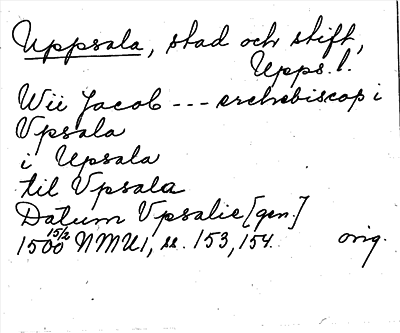 Uppsala, stad och stift,
Upps. l.
Wii Jacob --- erchebiscop i
Vpsala
i Upsala
til Vpsala
Datum Vpsalie [gen.]
1500 15/2 NMU1, s. 153, 154. orig.